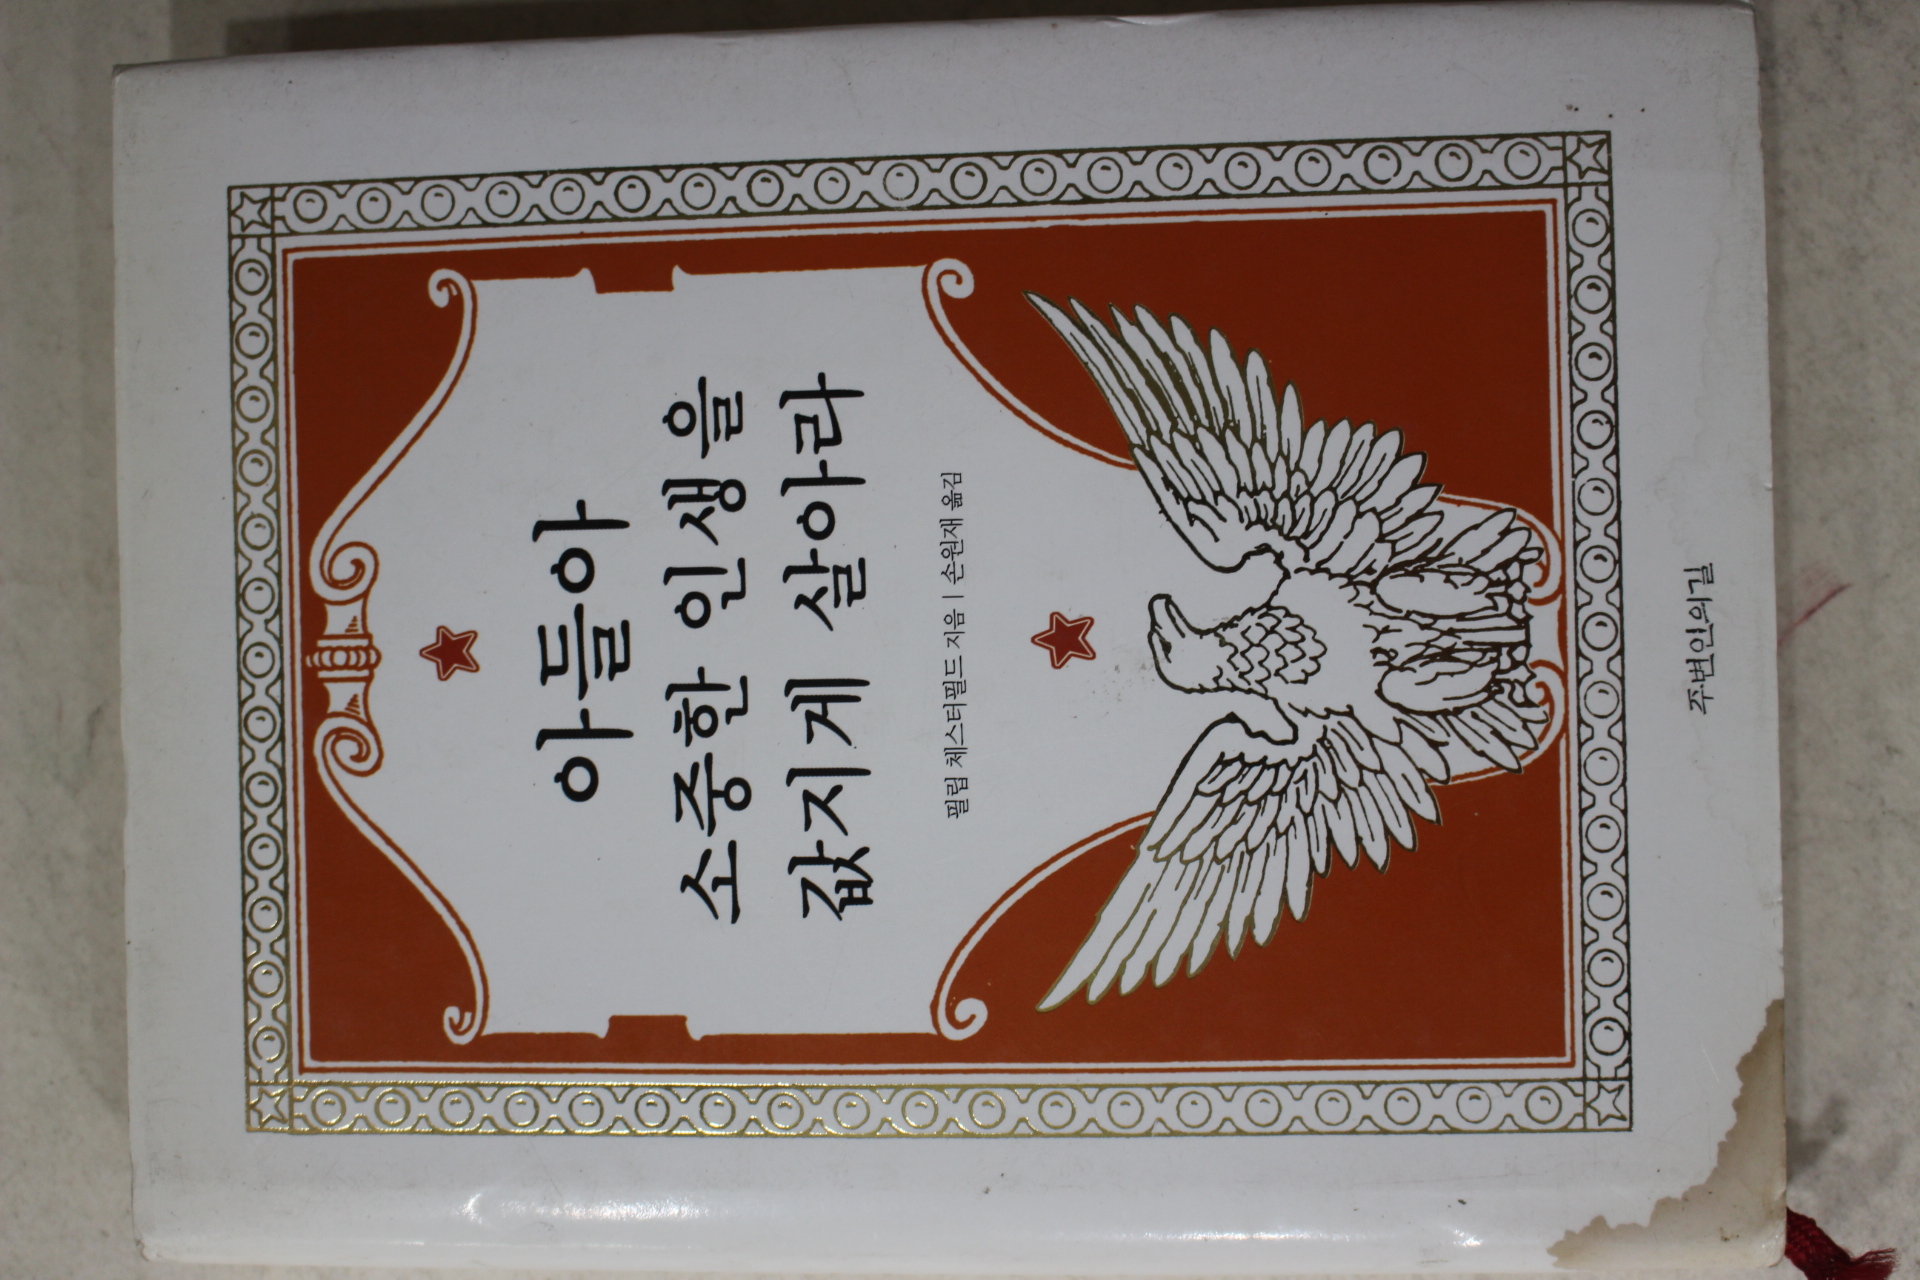 아들아
소중한 인생을
값지게 살아라
필립 체스터필드 지음 | 손원재 옮김
주변인의길